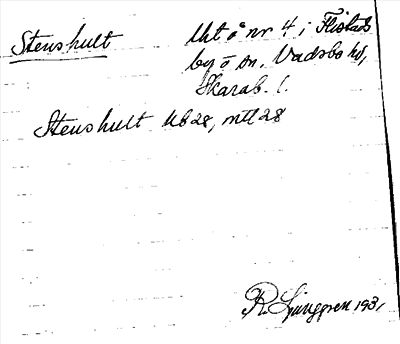 Stenshult
Ut å nr 4 i Flistads
by o sn, Vadsbo hd,
Skarab. l.
Stenshult UB28, mtl 28
R Ljunggren 1931